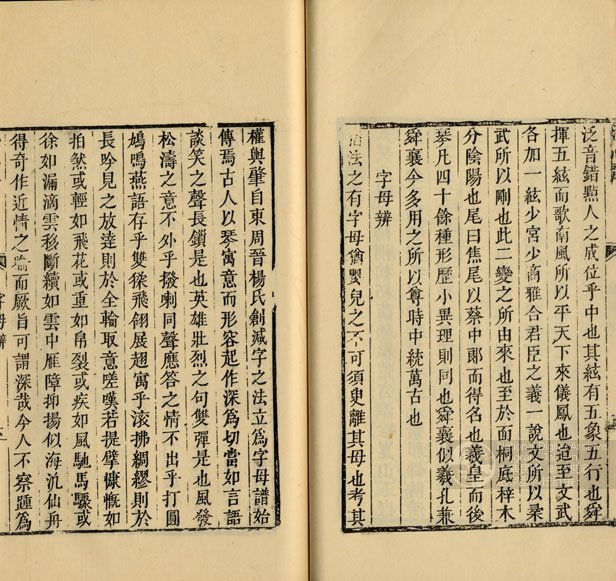 泛音錯㸃人之成位乎中也其絃有五象五行也舜
揮五絃而歌南風所以平天下來儀鳳也迨至文武
各加一絃少宮少商雅合君臣之義一說文所以柔
武所以剛也此二變之所由來也至於面桐底梓木
分陰陽也尾曰焦尾以蔡中郎而得名也羲皇而後
琴凡四十餘種形歷小異理則同也舜襄似羲孔兼
舜襄今多用之所以尊時中統萬古也
字母辨
法之有字母猶嬰兒之不可須臾離其母也考其
權輿肇自東周晉楊氏創減字之法立爲字母譜始
傳焉古人以琴寓意而形容起作深爲切當如言語
談笑之聲長鎖是也英雄壯烈之句雙彈是也風發
松濤之意不外乎撥剌同聲應答之情不出乎打圓
鳩鳴燕語存乎雙猱飛翎展趐寓乎滾拂綢繆則於
長吟見之放達則於全輪取意嗟嘆若提擘慷慨如
拍煞或輕如飛花或重如帛裂或疾如風馳馬驟或
徐如漏滴雲移斷續如雲中雁障抑揚似海氿仙舟
得奇作近情之喻而厥旨可謂深哉今人不察踵爲
字母辨